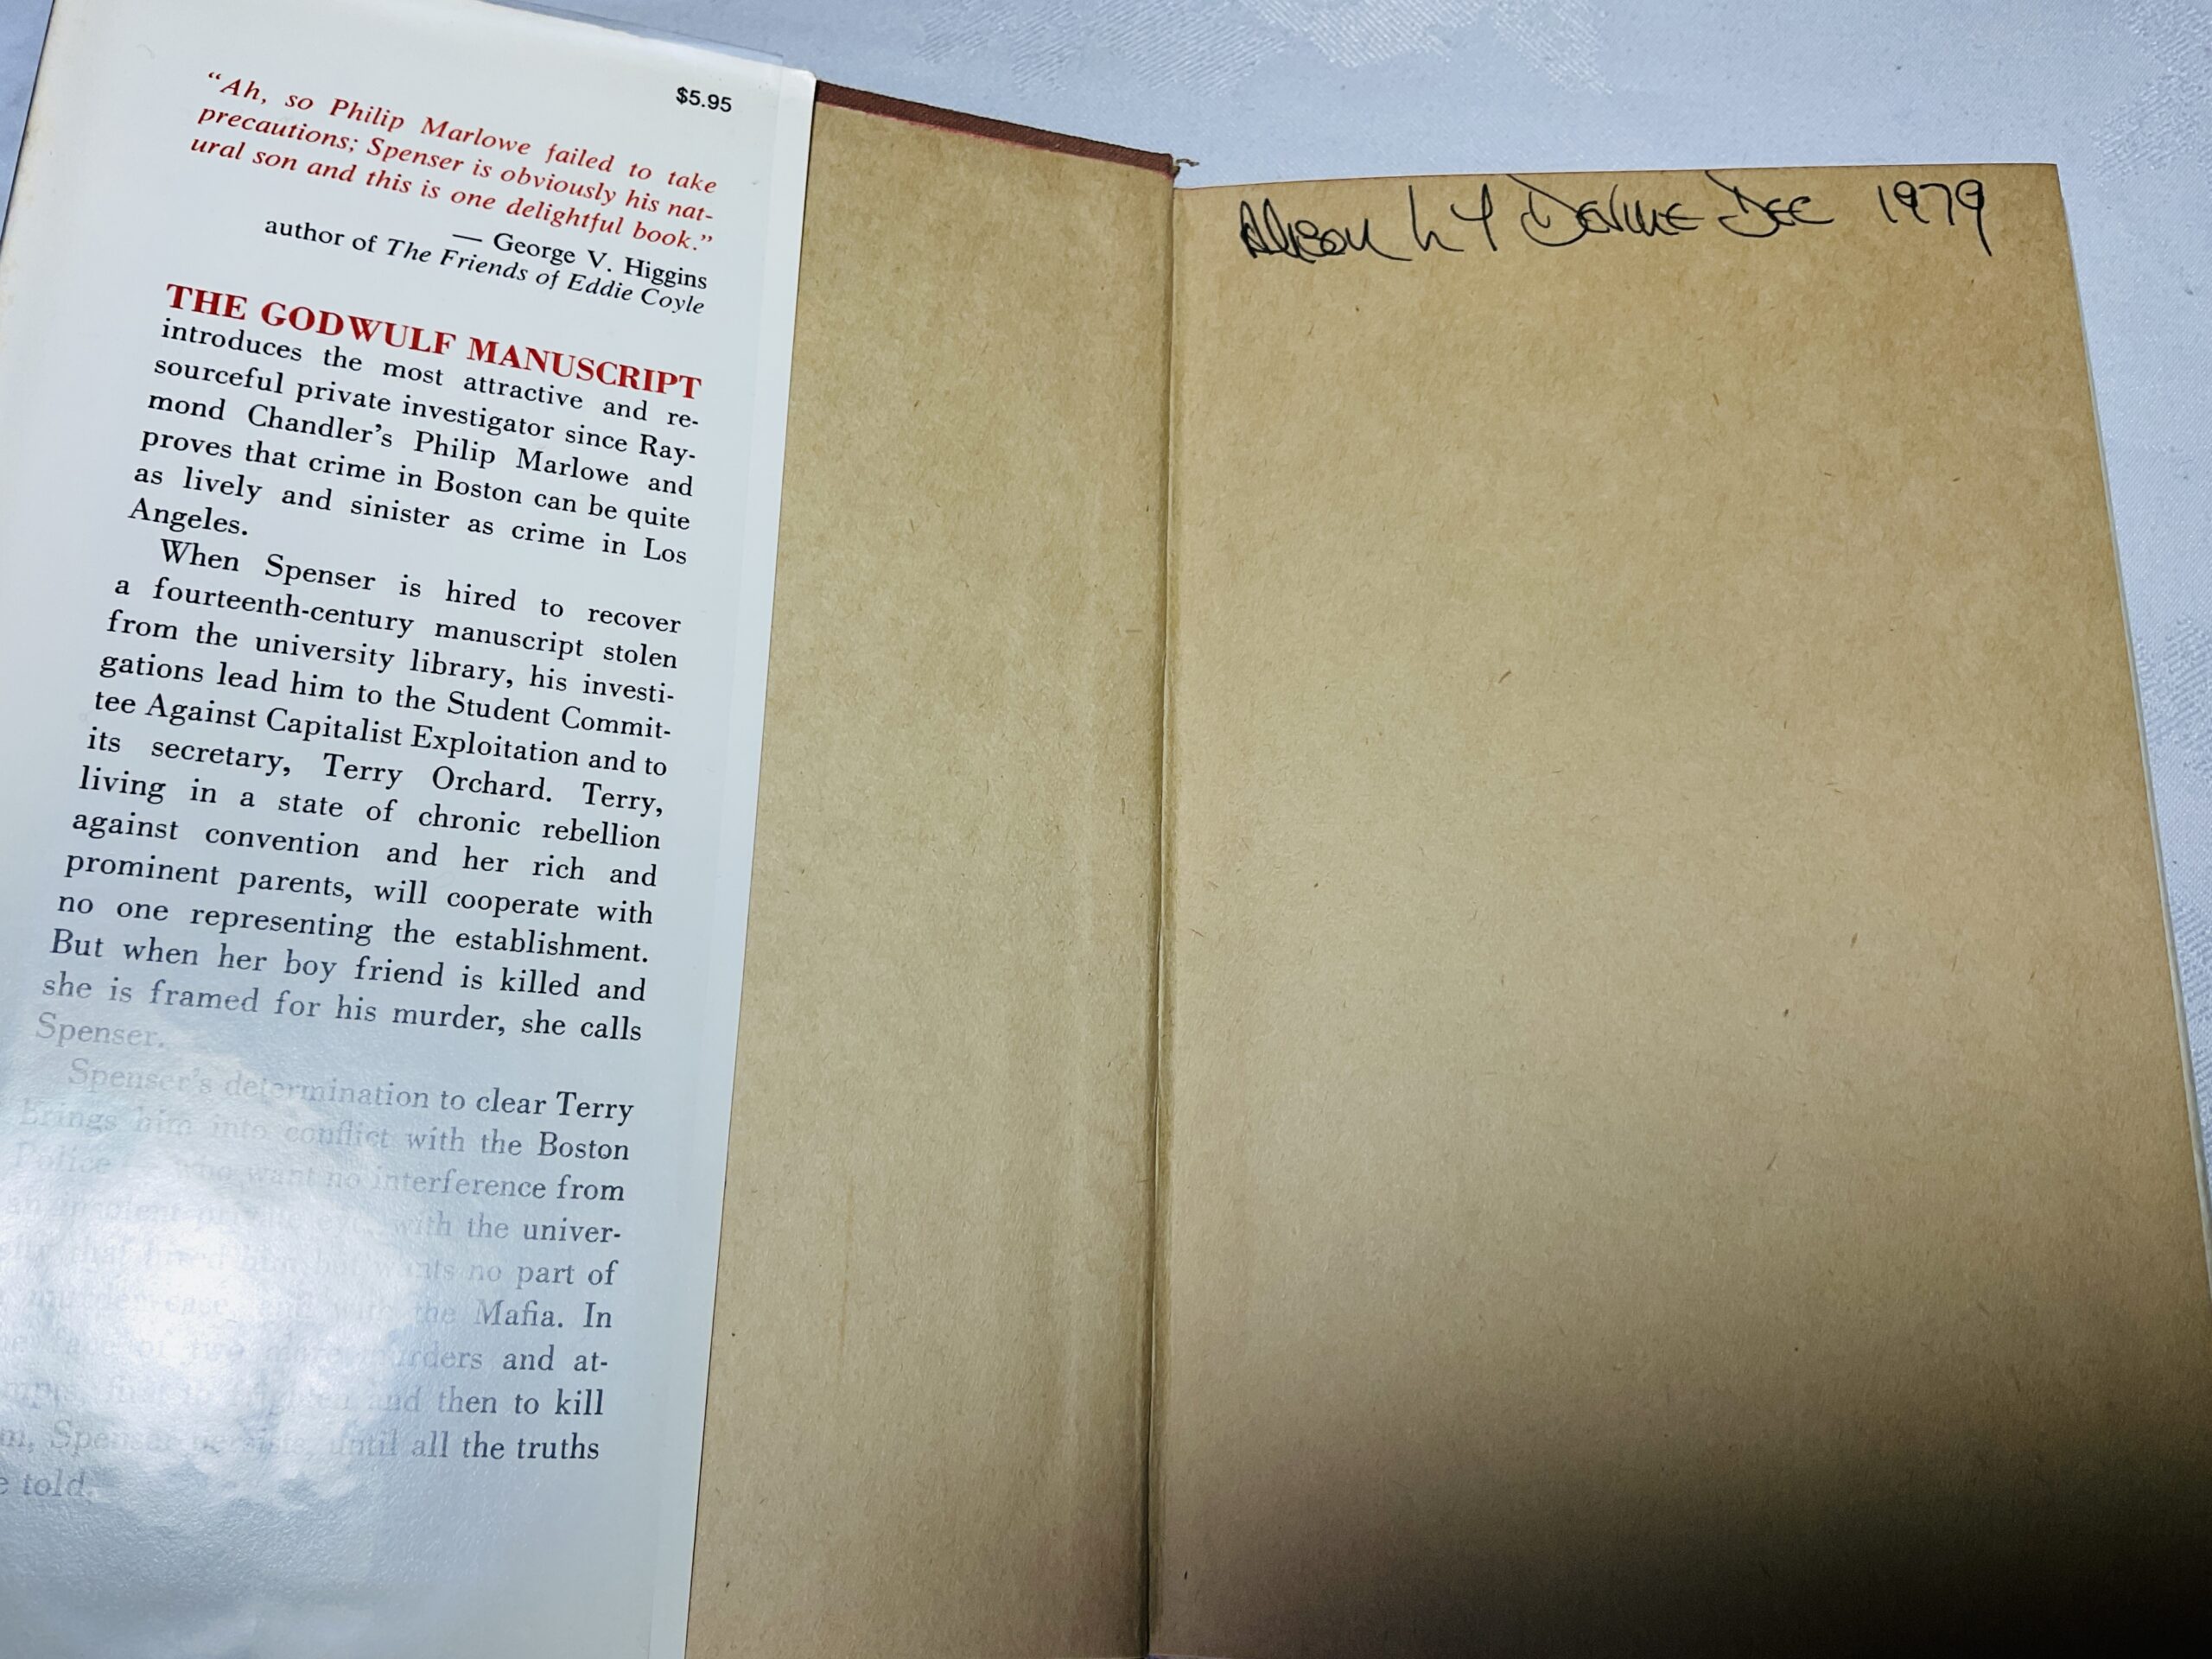 $5.95
“Ah, so Philip Marlowe failed to take
precautions; Spenser is obviously his nat-
ural son and this is one delightful book.”
— George V. Higgins
author of The Friends of Eddie Coyle
THE GODWULF MANUSCRIPT
introduces the most attractive and re-
sourceful private investigator since Ray-
mond Chandler’s Philip Marlowe and
proves that crime in Boston can be quite
as lively and sinister as crime in Los
Angeles.
When Spenser is hired to recover
a fourteenth-century manuscript stolen
from the university library, his investi-
gations lead him to the Student Commit-
tee Against Capitalist Exploitation and to
its secretary, Terry Orchard. Terry,
living in a state of chronic rebellion
against convention and her rich and
prominent parents, will cooperate with
no one representing the establishment.
But when her boy friend is killed and
she is framed for his murder, she calls
Spenser.
Spenser’s determination to clear Terry
brings him into conflict with the Boston
Police — who want no interference from
an insolent private eye, with the univer-
that hired him but wants no part of
murder case, and with the Mafia. In
of two more murders and at-
first to frighten and then to kill
Spenser persists until all the truths
told.
Dec 1979